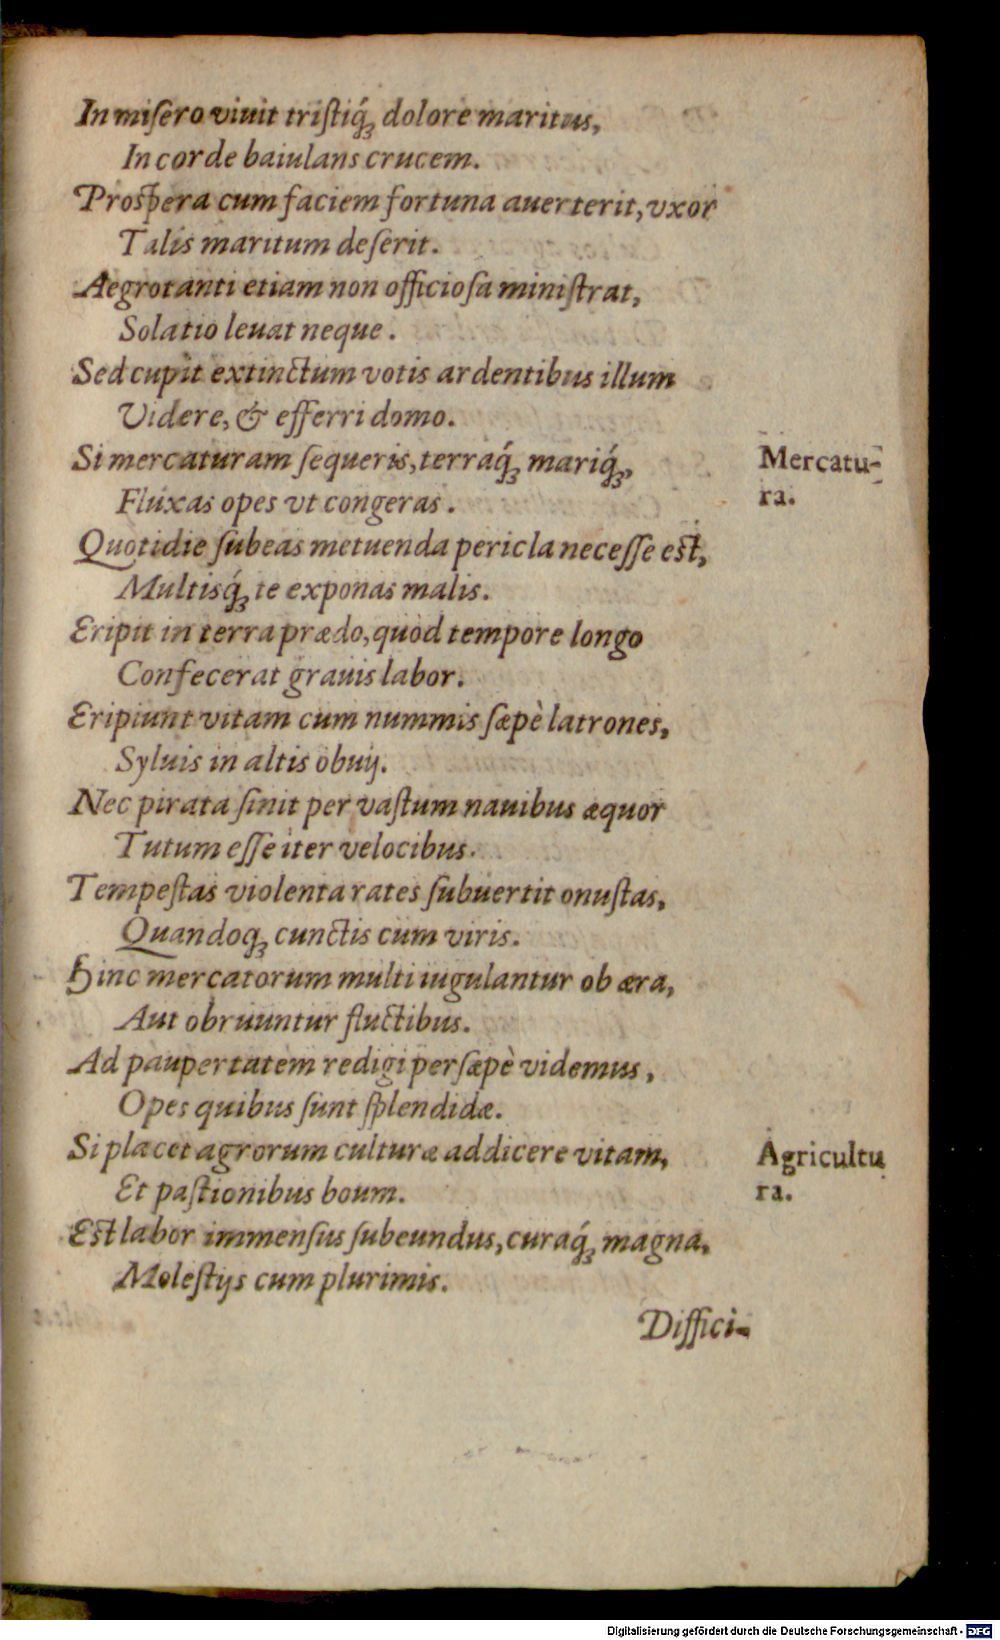 In miſero viuit triſtiq́ꝫ dolore maritus,
In corde baiulans crucem.
Proſpera cum faciem fortuna auerterit, vxor
Talis maritum deſerit.
Aegrotanti etiam non officioſa miniſtrat,
Solatio leuat neque.
Sed cupit extinctum votis ardentibus illum
Videre, & efferri domo.
Si mercaturam ſequeris, terraq́ꝫ mariq́ꝫ,
Mercatu-
ra.
Fluxas opes vt congeras.
Quotidie ſubeas metuenda pericla neceſſe eſt,
Multisq́ꝫ te exponas malis.
Eripit in terra prædo, quòd tempore longo
Confecerat grauis labor.
Eripiunt vitam cum nummis ſæpè latrones,
Syluis in altis obuij.
Nec pirata ſinit per vaſtum nauibus æquor
Tutum eſſe iter velocibus.
Tempeſtas violenta rates ſubuertit onuſtas,
Quandoqꝫ cunctis cum viris.
Hinc mercatorum multi iugulantur ob æra,
Aut obruuntur fluctibus.
Ad paupertatem redigi perſæpè videmus,
Opes quibus ſunt ſplendidæ.
Si placet agrorum culturæ addicere vitam,
Agricultu
ra.
Et paſtionibus boum.
Eſt labor immenſus ſubeundus, curaq́ꝫ magna,
Moleſtijs cum plurimis.
Diffici-
Digitalisierung gefördert durch die Deutsche Forschungsgemeinschaft - DFG